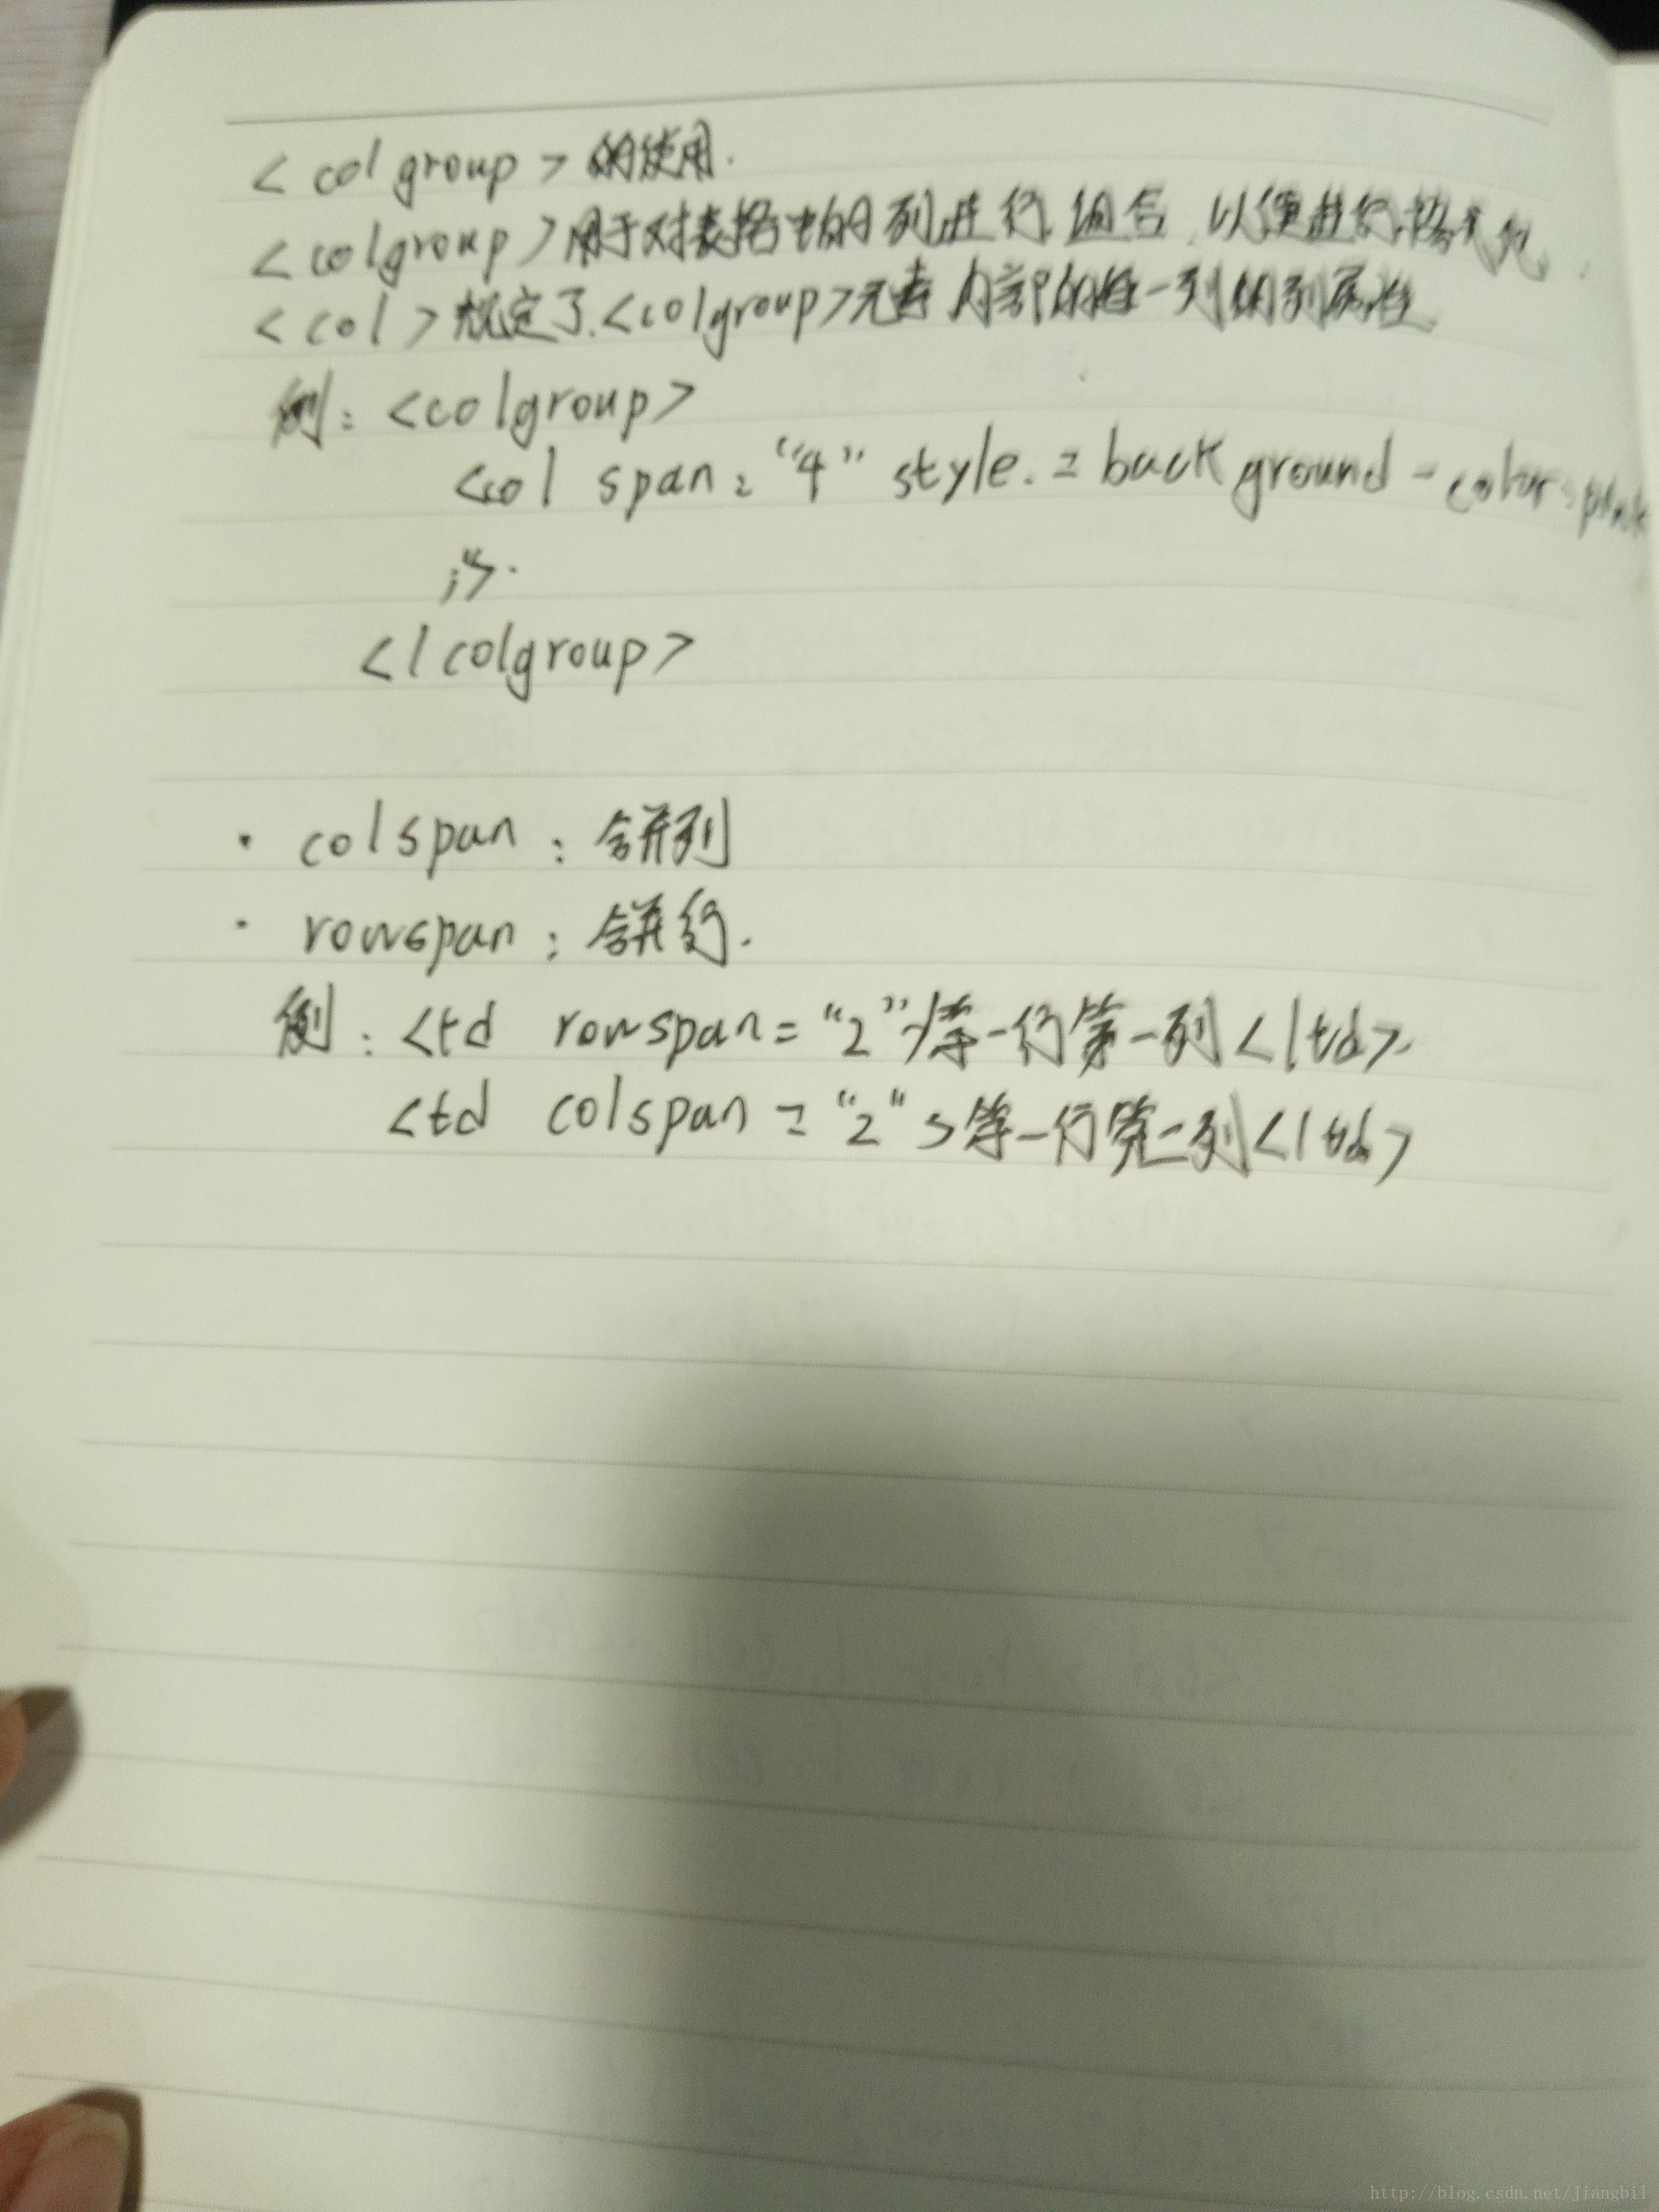 <colgroup>的使用.
<colgroup>用于对表格中的列进行组合,以便进行格式化.
<col>规定了<colgroup>元素内部的每一列的列属性
例:<colgroup>
<col span="4" style.=background-color:pink
;">.
</colgroup>
·colspan:合并列
·rowspan:合并行.
例:<td rowspan="2">第一行第一列</td>.
<td colspan="2">第一行第二列</td>
http://blog.csdn.net/Jiangbil